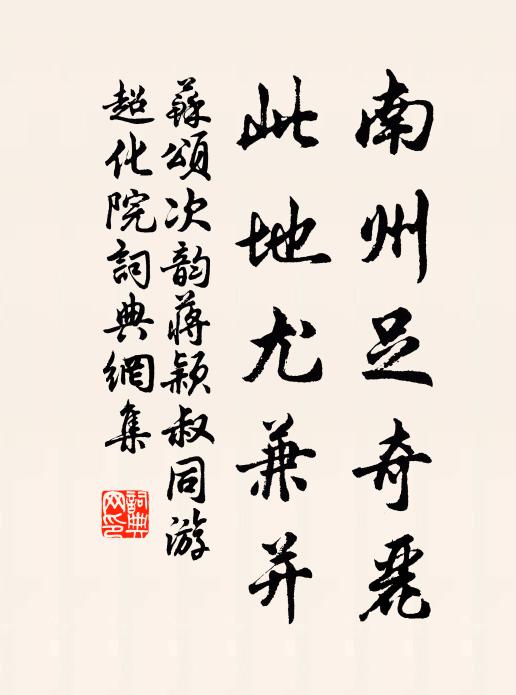 南州足奇麗
此地尤兼并
蘇頌次韵蔣颖叔同游
超化院詞典網集
詞典网印